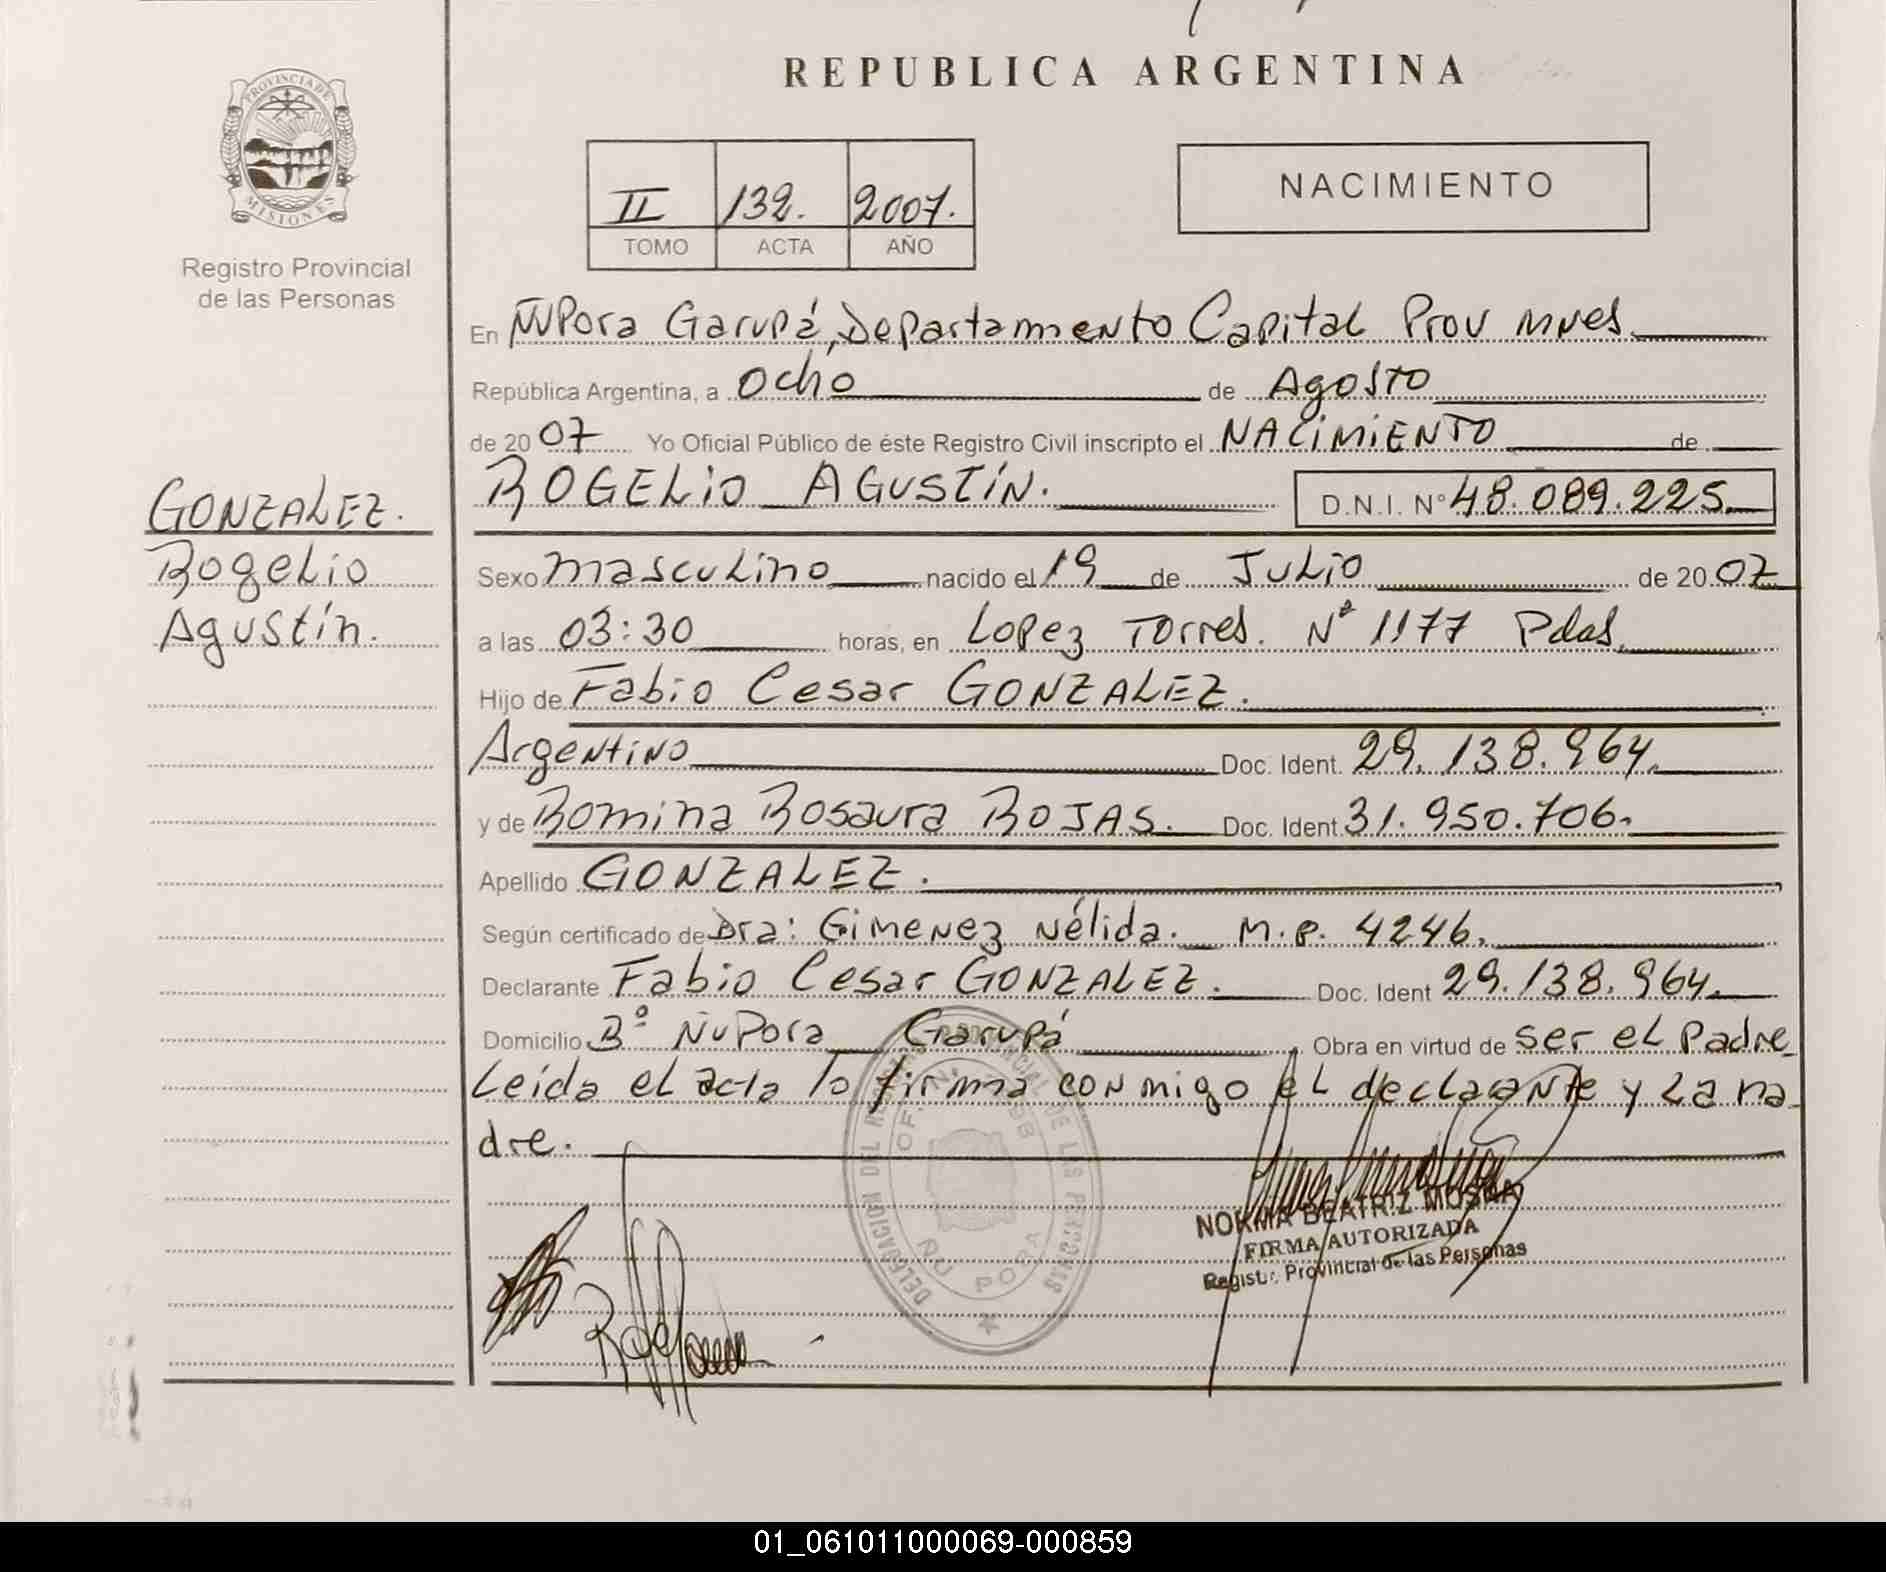 REPUBLICA ARGENTINA
PROVINCIA DE
MISIONES
Registro Provincial
de las Personas
II 132. 2007.
TOMO ACTA AÑO
NACIMIENTO
En ÑuPora Garupá, Departamento Capital Prov Mnes.
República Argentina, a Ocho de Agosto
de 2007 Yo Oficial Público de éste Registro Civil inscripto el NACIMIENTO de
ROGELIO AGUSTÍN. D.N.I. N° 48.089.225
GONZALEZ.
Rogelio
Agustín.
Sexo masculino nacido el 19 de Julio de 2007
a las 03:30 horas, en Lopez Torres. N° 1177 Pdas.
Hijo de Fabio Cesar GONZALEZ.
Argentino Doc. Ident. 29.138.964.
y de Romina Rosaura ROJAS. Doc. Ident 31.950.706.
Apellido GONZALEZ.
Según certificado de Dra: Gimenez Nélida. M.P. 4246.
Declarante Fabio Cesar GONZALEZ. Doc. Ident 29.138.964.
Domicilio B° ÑuPora Garupá Obra en virtud de ser el Padre
Leída el acta lo firma conmigo el declarante y La ma
dre.
DELEGACION DEL DE LAS PERSONAS
ÑU PORA
NORMA BEATRIZ
FIRMA AUTORIZADA
Provincial de las Personas
01_061011000069-000859